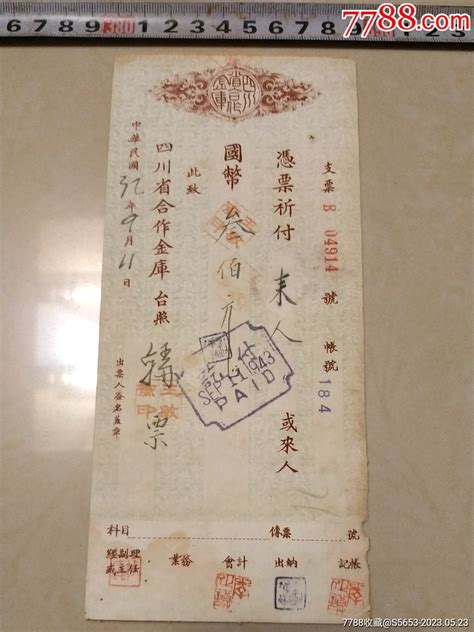 7788.com
支票 B 04914 號 帳號 184
憑票祈付 来人 或來人
國幣 叁佰元
此致
四川省合作金庫 台照
票
中華民國 32年9月11日
出票人簽名蓋章
付
SEP 11 1943
PAID
科目 傳票 號
經副理 業務 會計 出納 記帳
或主任
7788收藏@S5653-2023.05.23